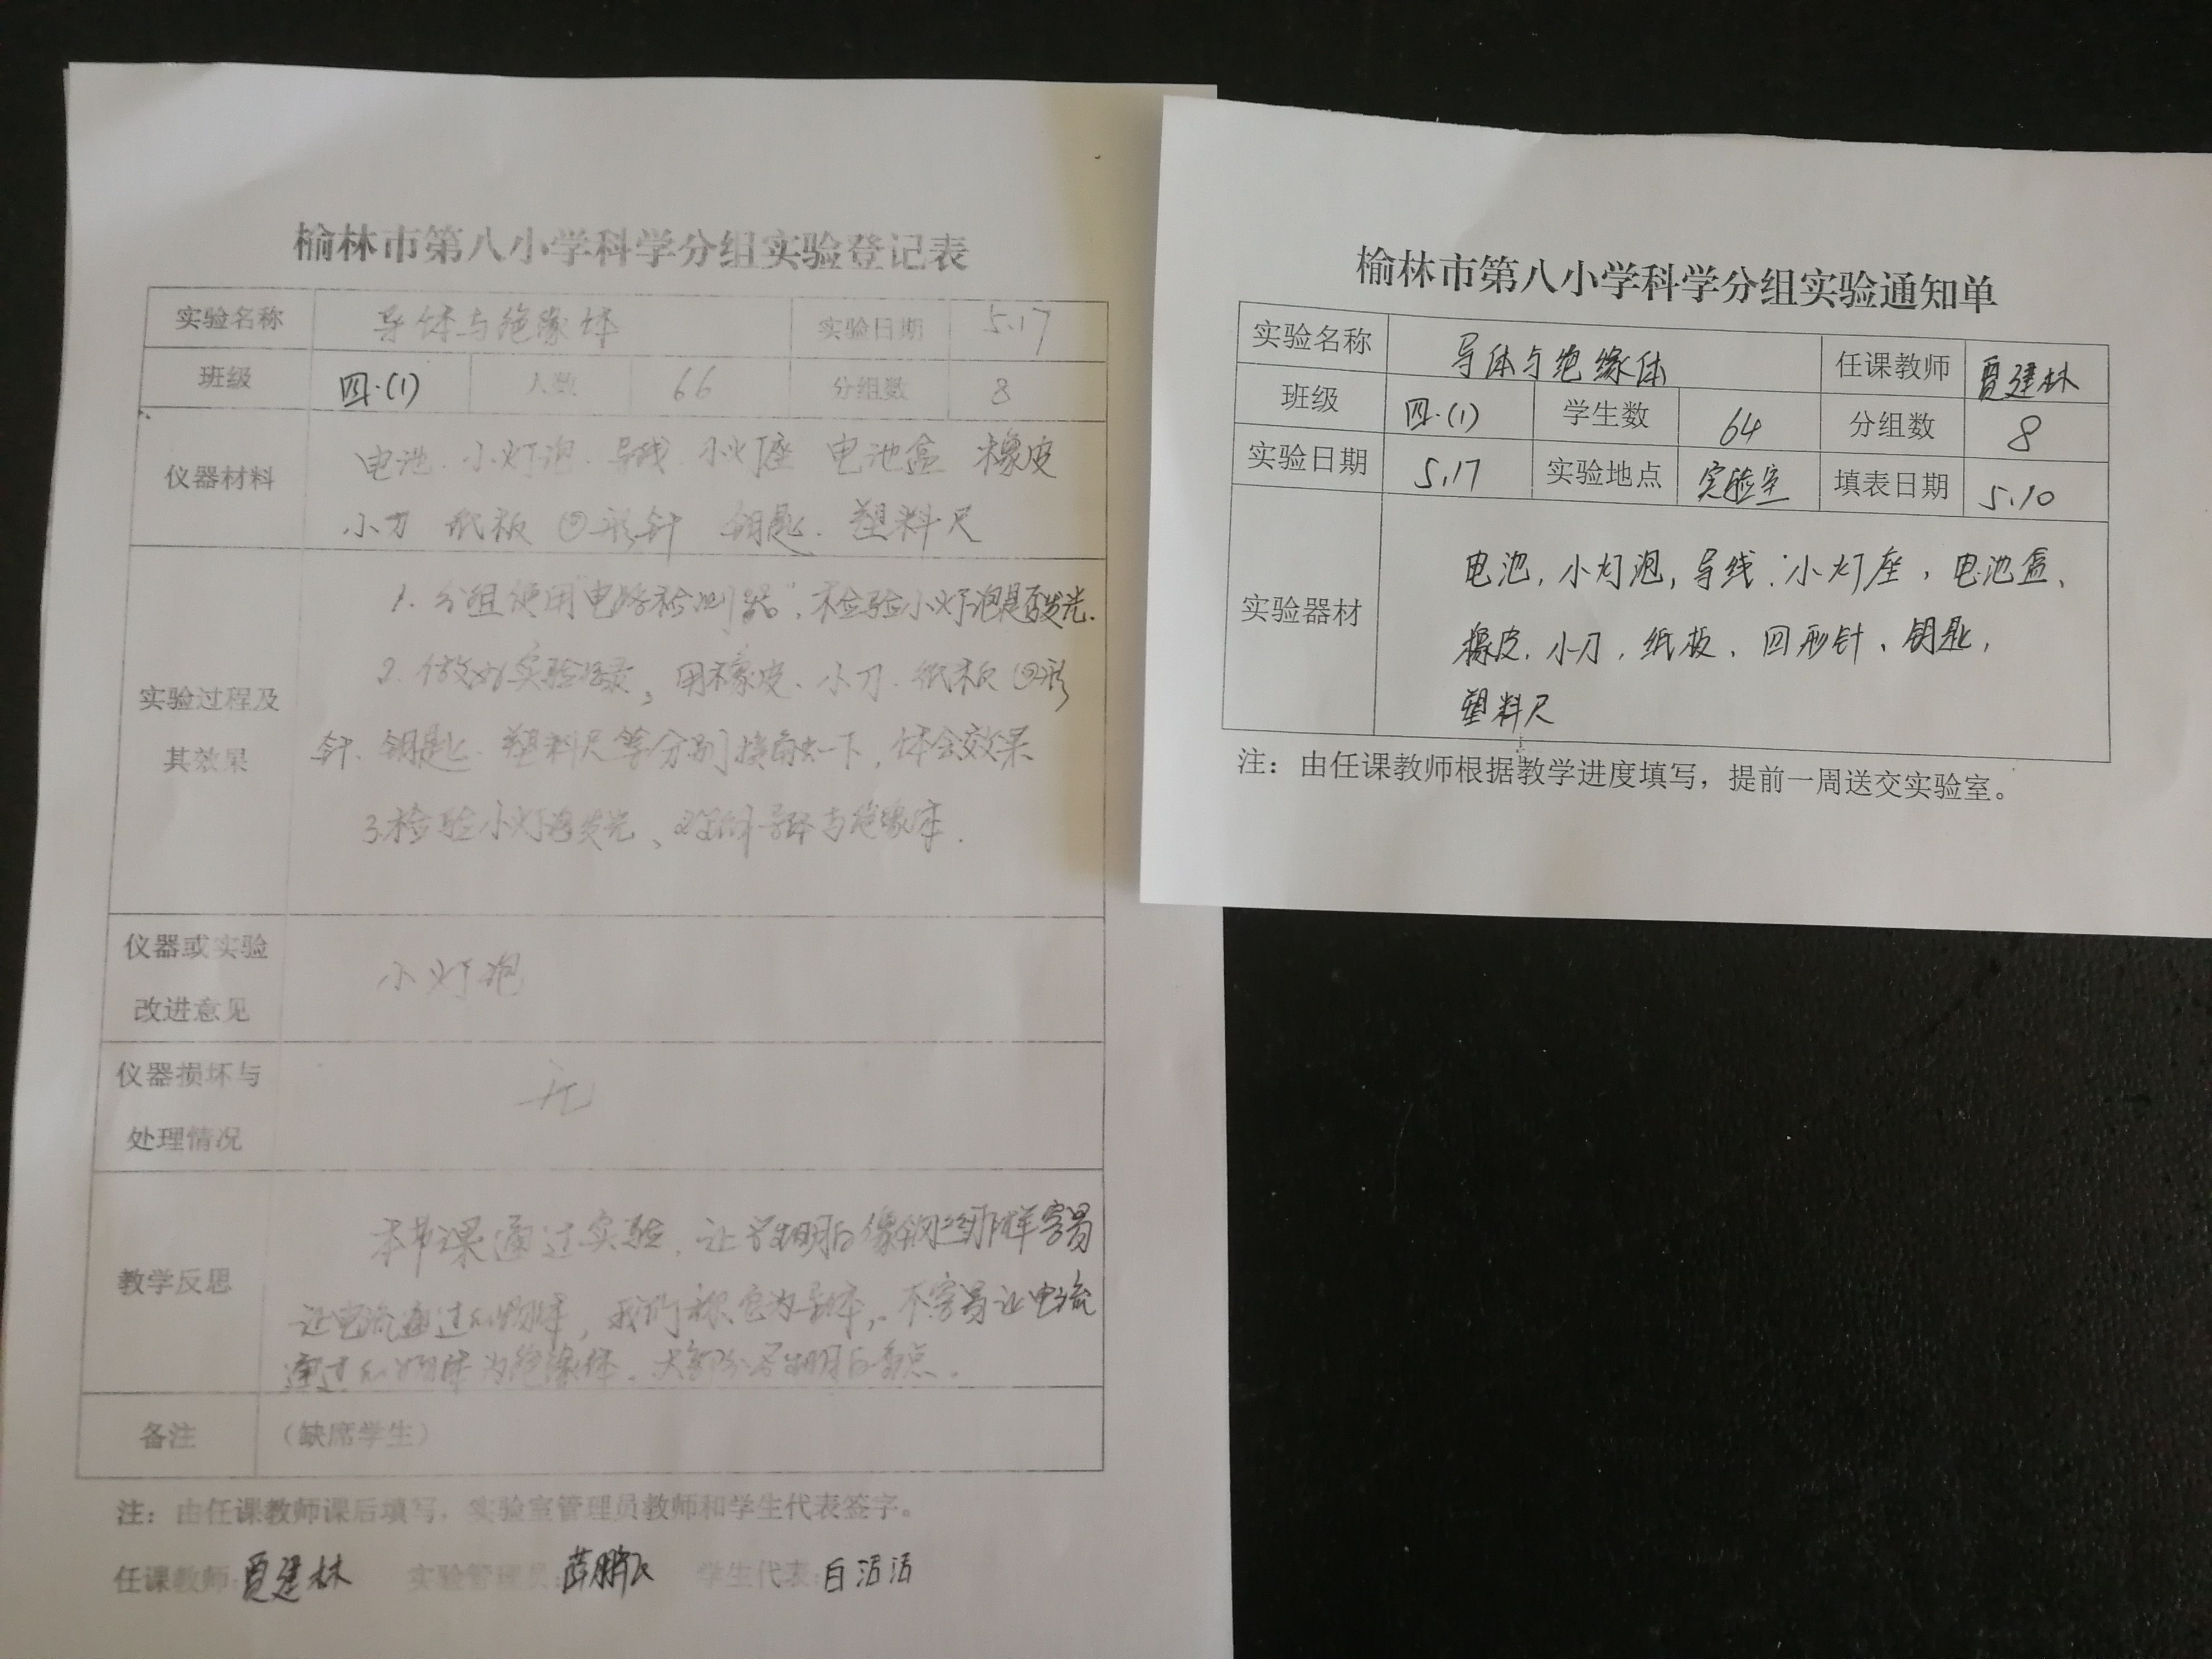 榆林市第八小学科学分组实验登记表
实验名称 导体与绝缘体 实验日期 5.17
班级 四.(1) 人数 66 分组数 8
仪器材料
电池. 小灯泡. 导线. 小灯座 电池盒 橡皮
小刀 纸板 回形针 钥匙. 塑料尺
实验过程及
其效果
1. 分组使用"电路检测器",检验小灯泡是否发光.
2. 做好实验记录, 用橡皮、小刀. 纸板 回形
针、钥匙、塑料尺等分别接触一下, 体会效果
3.检验小灯泡发光、导体与绝缘体.
仪器或实验
改进意见
小灯泡
仪器损坏与
处理情况
无
教学反思
本节课通过实验, 让学生明白像铜丝那样容易
让电流通过的物体, 我们称它为导体, 不容易让电流
通过的物体为绝缘体. 大部分学生明白看点.
备注 (缺席学生)
注：由任课教师课后填写，实验室管理员教师和学生代表签字。
任课教师:贾建林 实验管理员: 学生代表:白洁洁
榆林市第八小学科学分组实验通知单
实验名称 导体与绝缘体 任课教师 贾建林
班级 四.(1) 学生数 64 分组数 8
实验日期 5.17 实验地点 实验室 填表日期 5.10
实验器材
电池, 小灯泡, 导线. 小灯座, 电池盒、
橡皮. 小刀, 纸板、回形针、钥匙,
塑料尺
注：由任课教师根据教学进度填写，提前一周送交实验室。